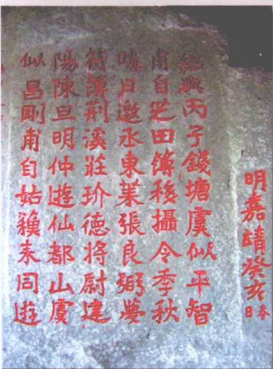 明嘉靖癸亥春日
紹興丙子錢塘虞似平智
甫自芝田饋移攝令季秋
晦日邀丞東萊張良弼夢
符簿荆溪莊玠德將尉建
陽陳旦明仲遊仙都山虞
似昌剛甫自姑篾来同遊